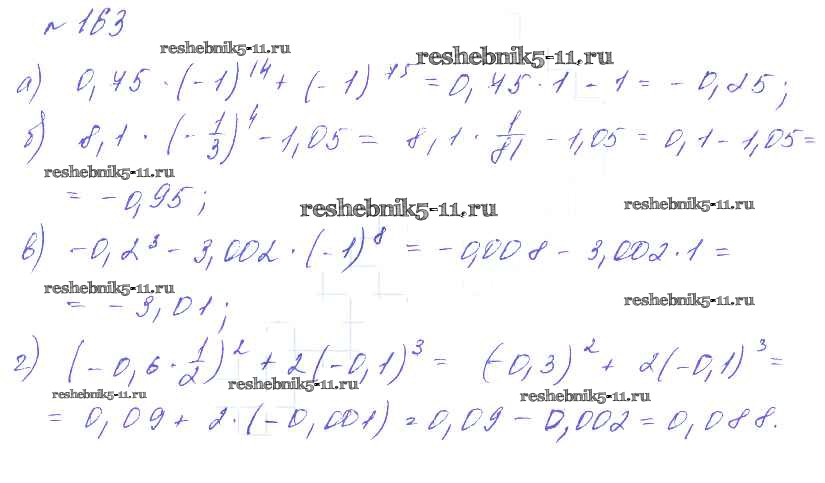 № 163
reshebnik5-11.ru
reshebnik5-11.ru
а) 0,75 · (-1)^14 + (-1)^15 = 0,75 · 1 - 1 = - 0,25;
б) 8,1 · (- 1/3)^4 - 1,05 = 8,1 · 1/81 - 1,05 = 0,1 - 1,05 =
reshebnik5-11.ru
= - 0,95;
reshebnik5-11.ru
reshebnik5-11.ru
в) -0,2³ - 3,002 · (-1)^8 = - 0,008 - 3,002 · 1 =
reshebnik5-11.ru
= - 3,01;
reshebnik5-11.ru
г) (-0,6 · 1/2)² + 2(-0,1)³ = (-0,3)² + 2(-0,1)³ =
reshebnik5-11.ru
reshebnik5-11.ru
reshebnik5-11.ru
= 0,09 + 2 · (-0,001) = 0,09 - 0,002 = 0,088.